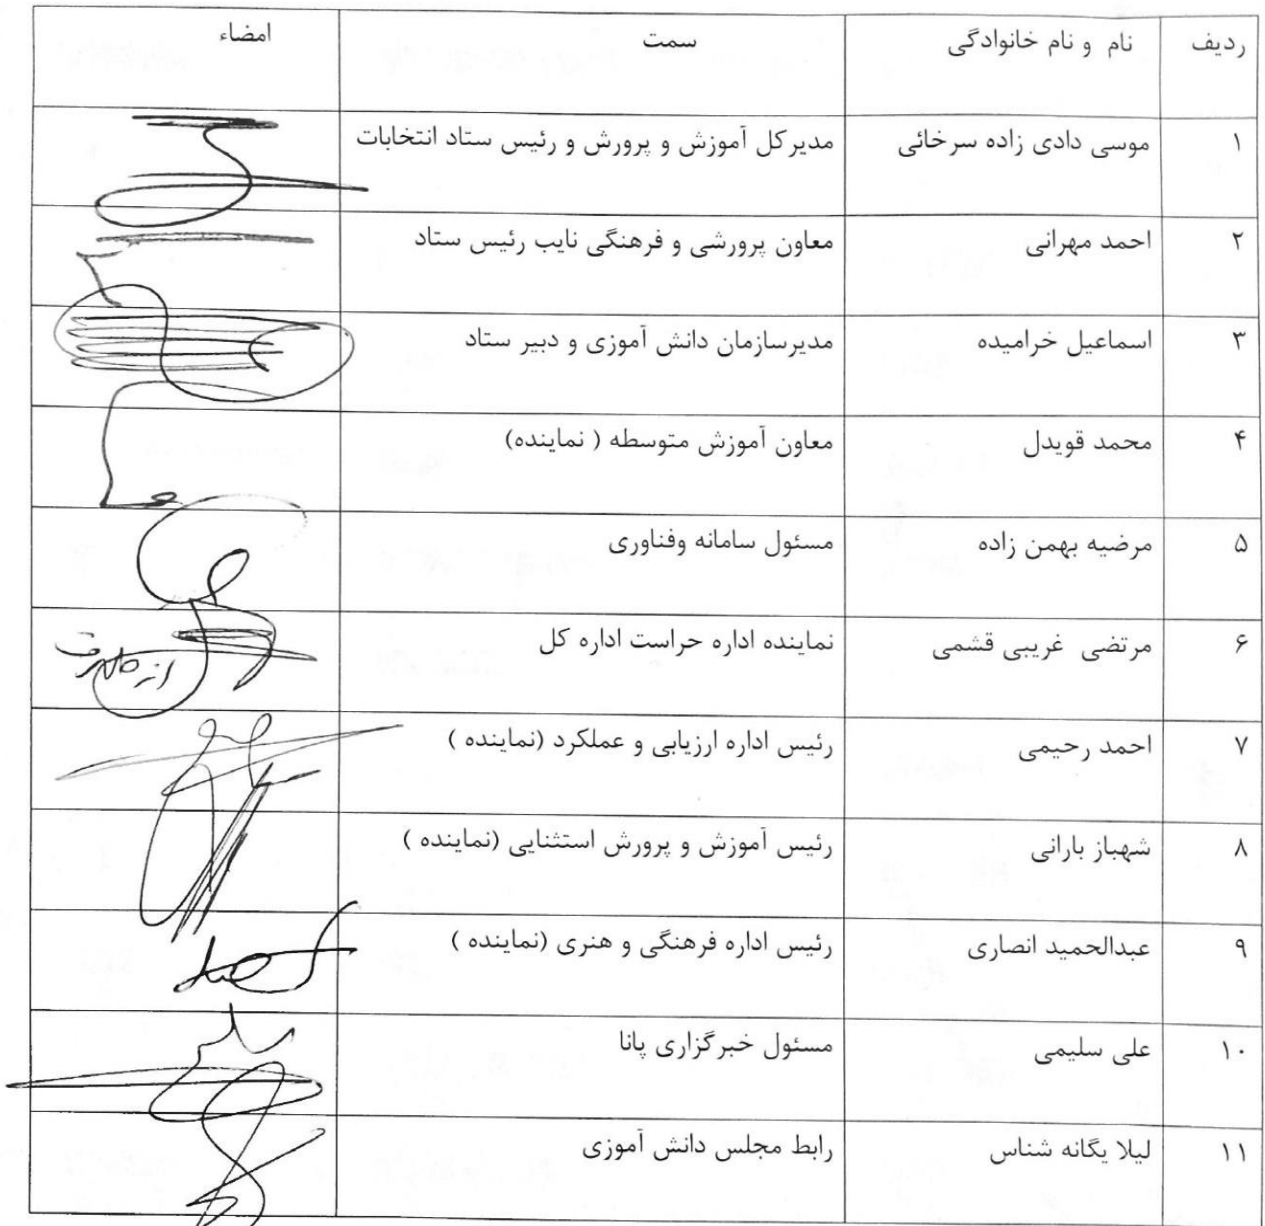 ردیف نام و نام خانوادگی سمت امضاء
۱ موسی دادی زاده سرخائی مدیرکل آموزش و پرورش و رئیس ستاد انتخابات
۲ احمد مهرانی معاون پرورشی و فرهنگی نایب رئیس ستاد
۳ اسماعیل خرامیده مدیرسازمان دانش آموزی و دبیر ستاد
۴ محمد قویدل معاون آموزش متوسطه ( نماینده)
۵ مرضیه بهمن زاده مسئول سامانه وفناوری
۶ مرتضی غریبی قشمی نماینده اداره حراست اداره کل از طرف
۷ احمد رحیمی رئیس اداره ارزیابی و عملکرد (نماینده )
۸ شهباز بارانی رئیس آموزش و پرورش استثنایی (نماینده )
۹ عبدالحمید انصاری رئیس اداره فرهنگی و هنری (نماینده )
۱۰ علی سلیمی مسئول خبرگزاری پانا
۱۱ لیلا یگانه شناس رابط مجلس دانش آموزی